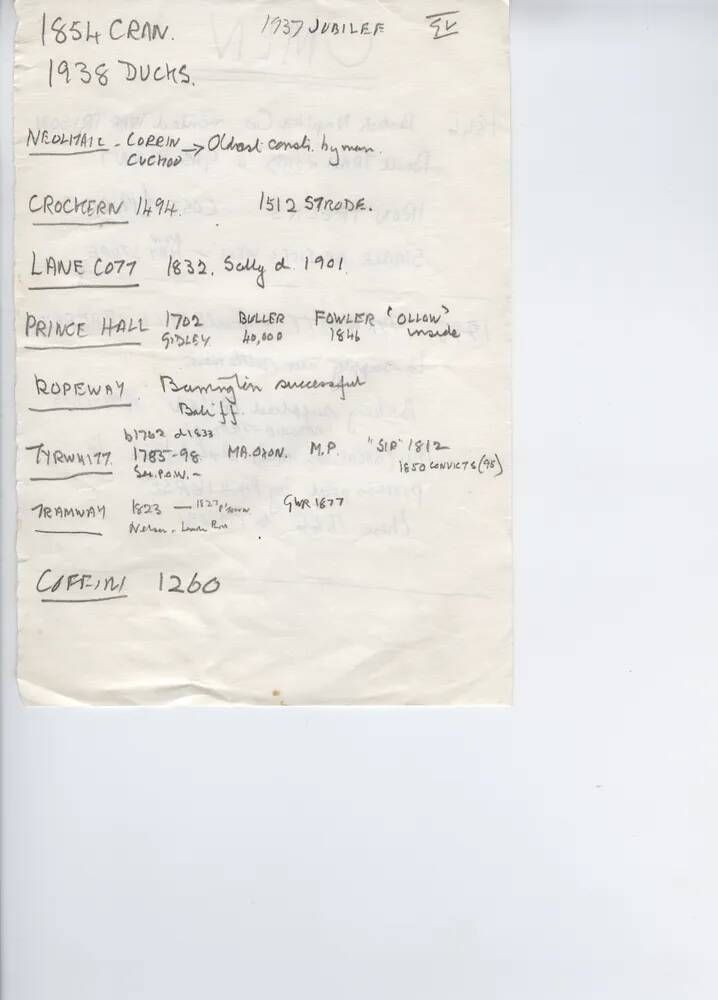 1854 CRAN. 1937 JUBILEE
1938 DUCKS.
NEOLITHIC - CORRIN → Oldest constr. by man.
CUCKOO
CROCKERN 1494. 1512 STRODE.
LANE COTT 1832. Sally d. 1901
PRINCE HALL 1702 BULLER FOWLER 'OLLOW'
GIDLEY 40,000 1846 inside
ROPEWAY. Barrington successful
Bailiff.
b1762 d1833
TYRWHITT 1785-98 MA.OXON. M.P. "SIR" 1812
Sec.P.O.W. - 1850 CONVICTS (95)
TRAMWAY 1823 — 1827 P'town GWR 1877
COFFIN 1260